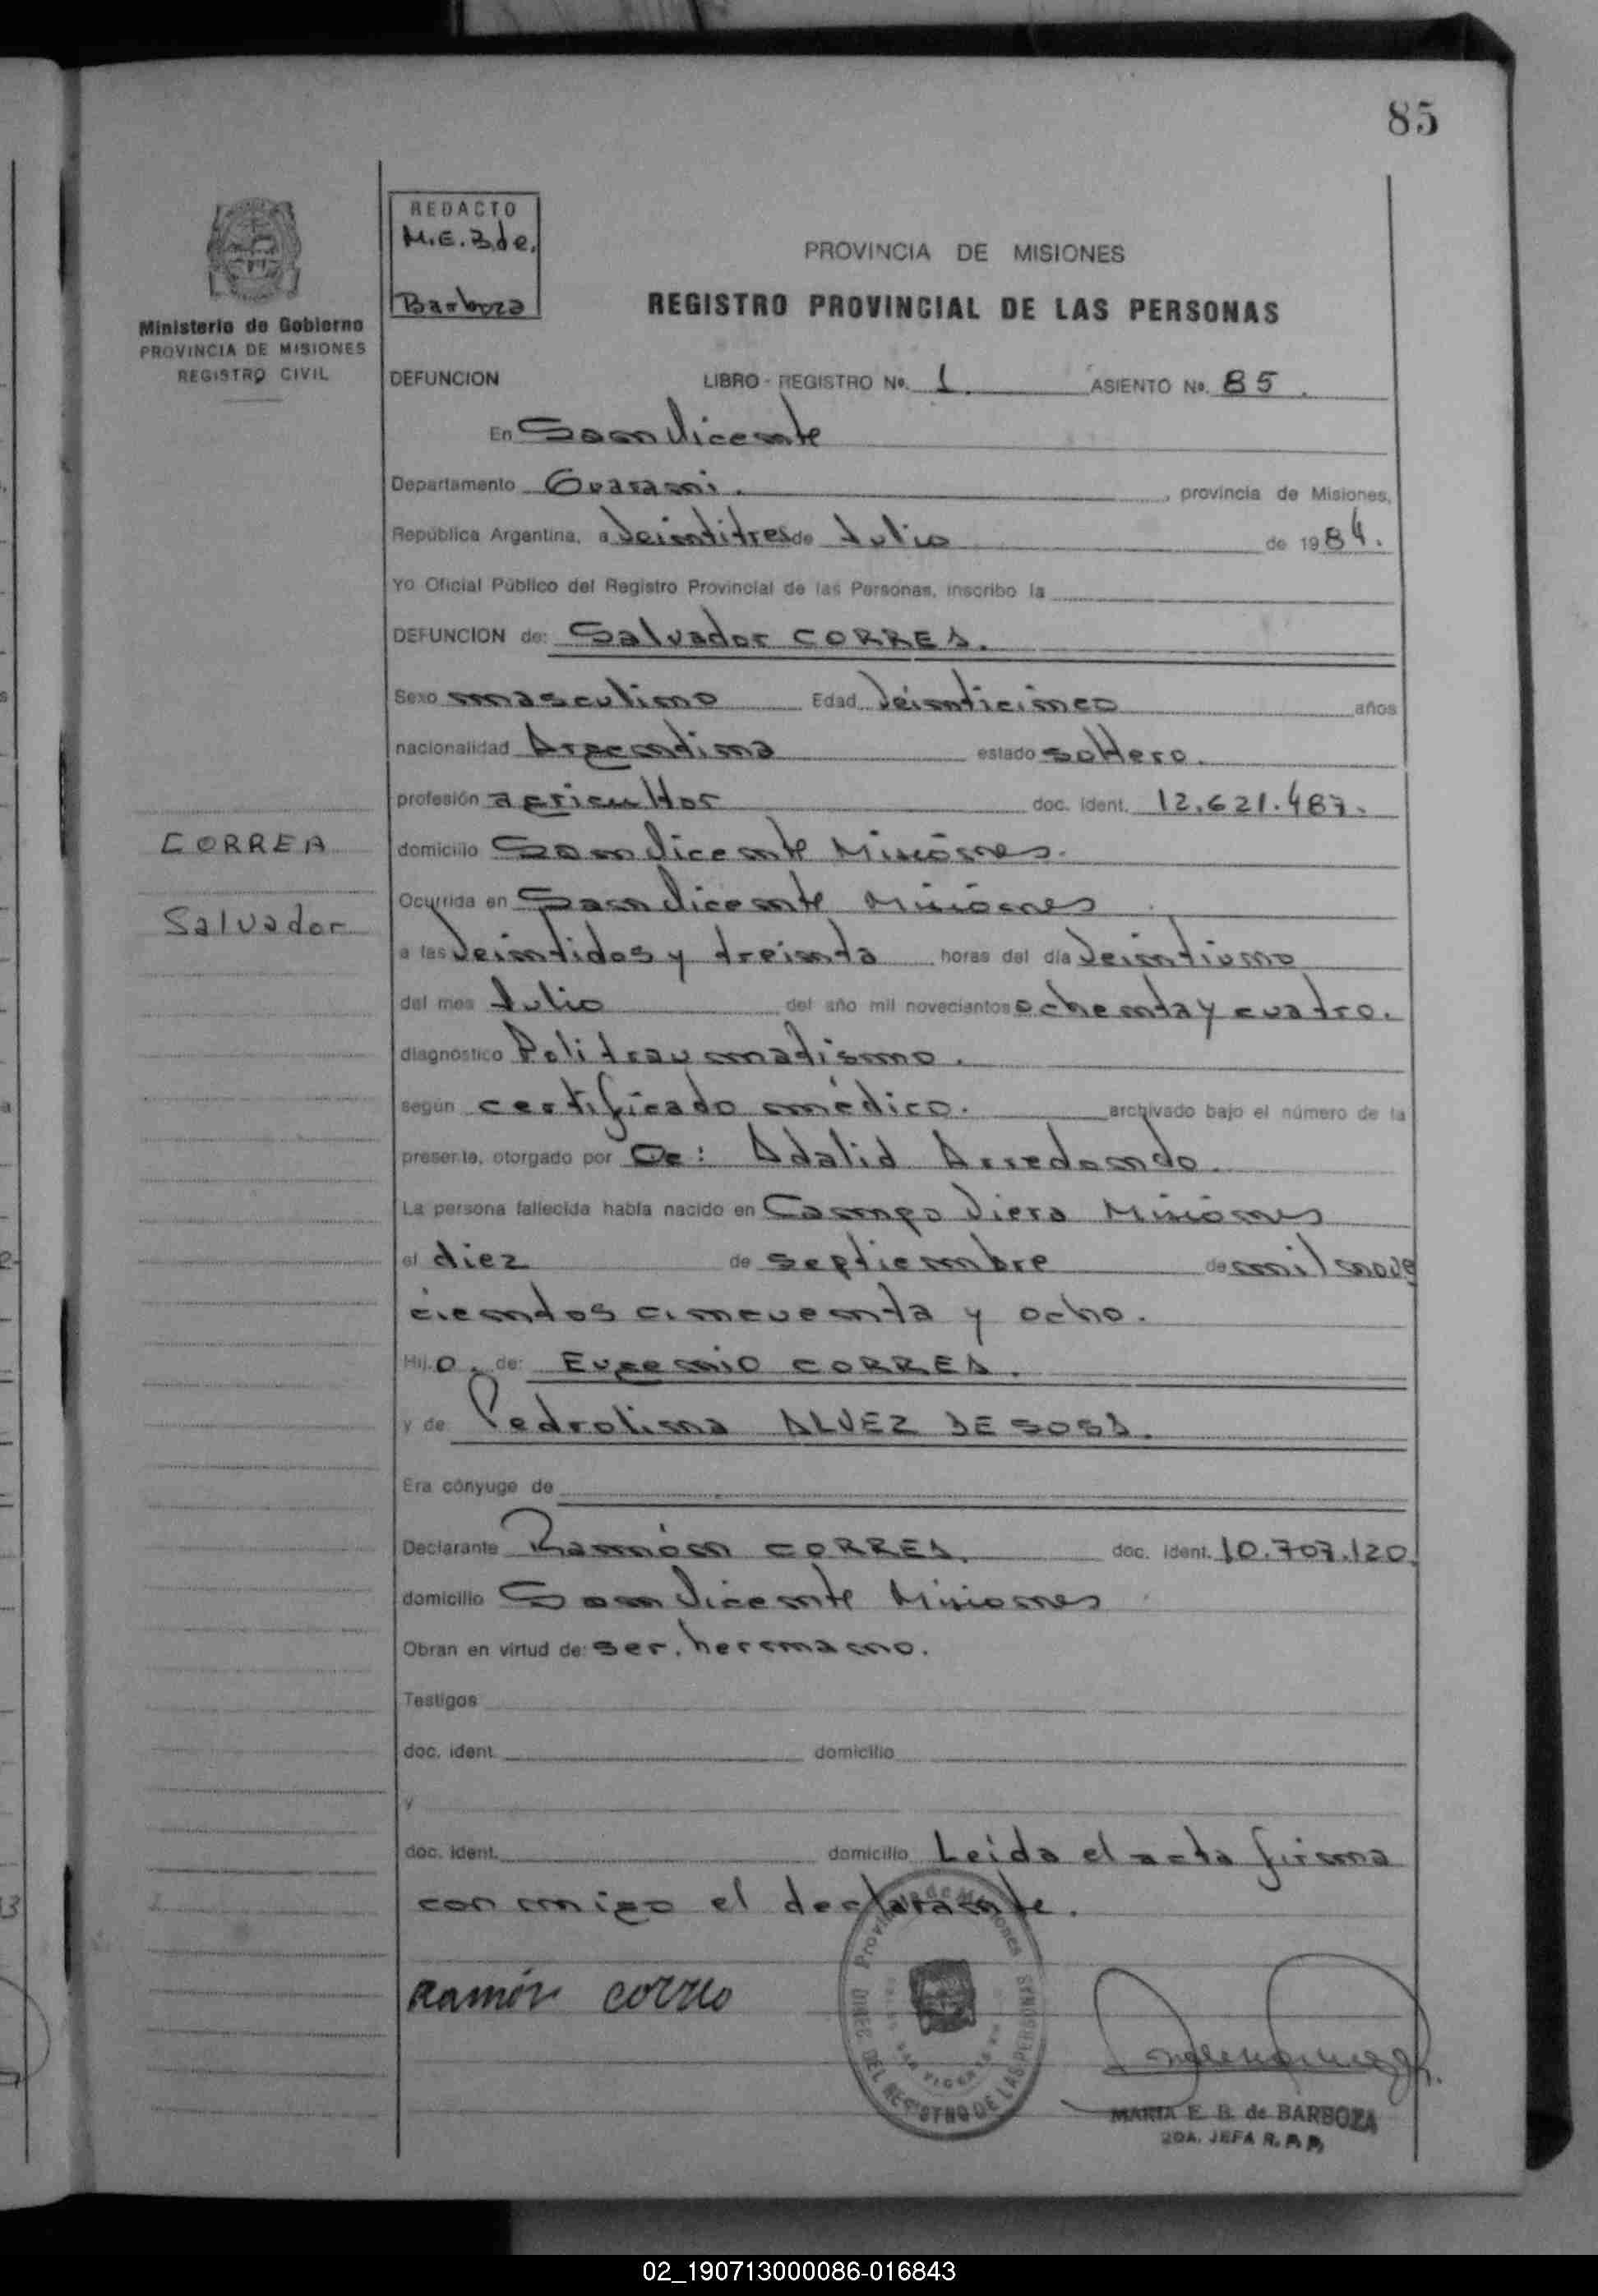 85
REDACTO
M.E.B de.
Barboza
Ministerio de Gobierno
PROVINCIA DE MISIONES
REGISTRO CIVIL
PROVINCIA DE MISIONES
REGISTRO PROVINCIAL DE LAS PERSONAS
DEFUNCION LIBRO - REGISTRO Nº. 1. ASIENTO Nº. 85.
En San Vicente
Departamento Guarani. , provincia de Misiones,
República Argentina, a Veintitres de Julio de 1984.
Yo Oficial Público del Registro Provincial de las Personas, inscribo la
DEFUNCION de: Salvador CORREA.
Sexo masculino Edad Veinticinco años
nacionalidad Argentina estado soltero.
profesión agricultor doc. ident. 12.621.487.
CORREA
domicilio San Vicente Misiones.
Salvador
Ocurrida en San Vicente Misiones
a las Veintidos y treinta horas del día Veintiuno
del mes Julio del año mil novecientos ochenta y cuatro.
diagnóstico Politraumatismo.
según certificado médico. archivado bajo el número de la
presente, otorgado por Dr: Adalid Arredondo.
La persona fallecida había nacido en Campo Viera Misiones
el diez de septiembre de mil nove
cientos cincuenta y ocho.
Hij o. de: Eugenio CORREA.
y de Pedrolina ALVEZ DE SOSA.
Era cónyuge de
Declarante Ramón CORREA. doc. ident. 10.707.120.
domicilio San Vicente Misiones
Obran en virtud de: ser. hermano.
Testigos
doc. ident. domicilio
y
doc. ident. domicilio Leida el acta firma
conmigo el declarante.
Ramón Correa
Provincia de Misiones
DEL REGISTRO DE LAS PERSONAS
SAN VICENTE
MARIA E. B. de BARBOZA
2DA. JEFA R. P. P.
02_190713000086-016843